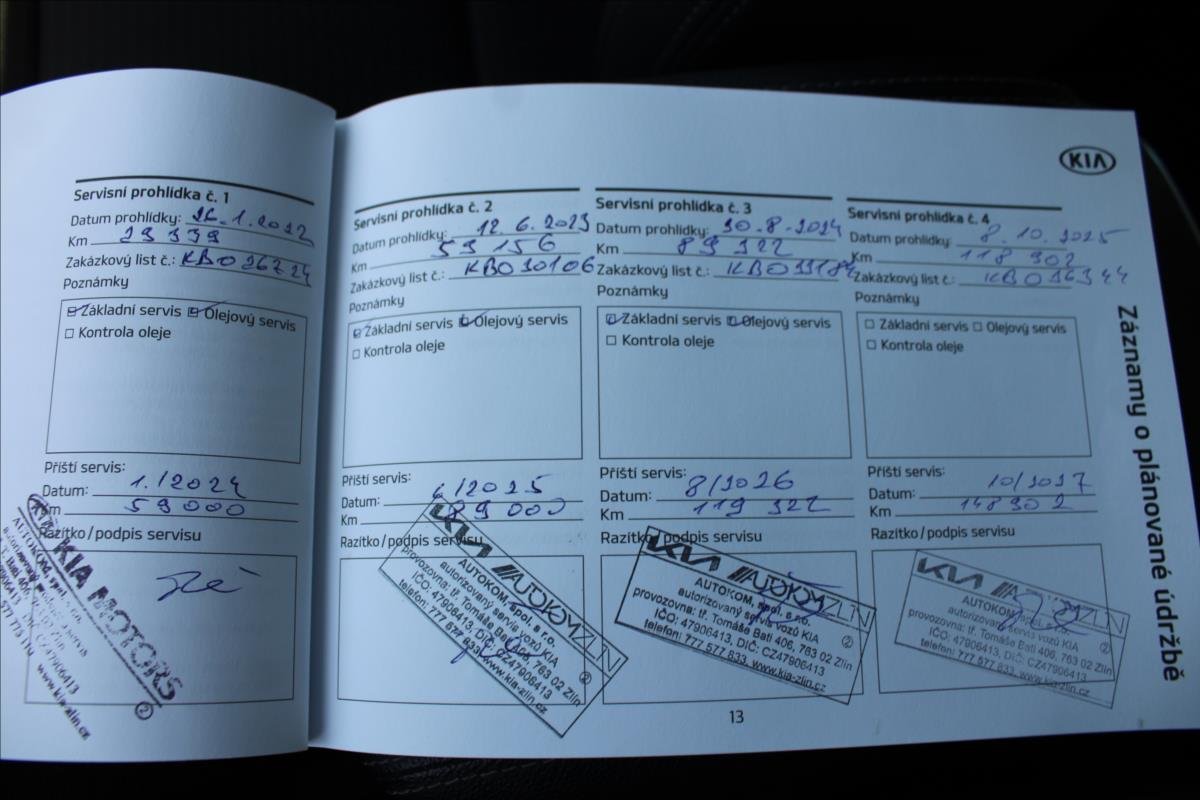 KIA
Servisní prohlídka č. 1
Datum prohlídky:
Km 29 339
Zakázkový list č.:
Poznámky
Základní servis Olejový servis
Kontrola oleje
Příští servis:
Datum: 1./2024
Km 59000
Razítko/podpis servisu
KIA MOTORS
www.kia-zlin.cz
Servisní prohlídka č. 2
Datum prohlídky: 12. 6. 2023
Km 59 156
Zakázkový list č.: KBO30106
Poznámky
Základní servis Olejový servis
Kontrola oleje
Příští servis:
Datum: 6/2025
Km 89000
Razítko/podpis servisu
KIA AUTOKOM ZLIN
AUTOKOM, spol. s r.o.
autorizovaný servis vozů KIA
provozovna: tř. Tomáše Bati 406, 763 02 Zlín
IČO: 47906413, DIČ: CZ47906413
telefon: 777 577 833, www.kia-zlin.cz
Servisní prohlídka č. 3
Datum prohlídky: 30.8.2024
Km 89 322
Zakázkový list č.: KBO33184
Poznámky
Základní servis Olejový servis
Kontrola oleje
Příští servis:
Datum: 8/2026
Km 119 322
Razítko/podpis servisu
KIA AUTOKOM ZLIN
AUTOKOM, spol. s r.o.
autorizovaný servis vozů KIA
provozovna: tř. Tomáše Bati 406, 763 02 Zlín
IČO: 47906413, DIČ: CZ47906413
telefon: 777 577 833, www.kia-zlin.cz
Servisní prohlídka č. 4
Datum prohlídky: 8. 10. 2025
Km 118 902
Zakázkový list č.: KBO36344
Poznámky
Základní servis Olejový servis
Kontrola oleje
Příští servis:
Datum: 10/2027
Km 148902
Razítko/podpis servisu
KIA AUTOKOM ZLIN
AUTOKOM, spol. s r.o.
autorizovaný servis vozů KIA
provozovna: tř. Tomáše Bati 406, 763 02 Zlín
IČO: 47906413, DIČ: CZ47906413
telefon: 777 577 833, www.kia-zlin.cz
Záznamy o plánované údržbě
13